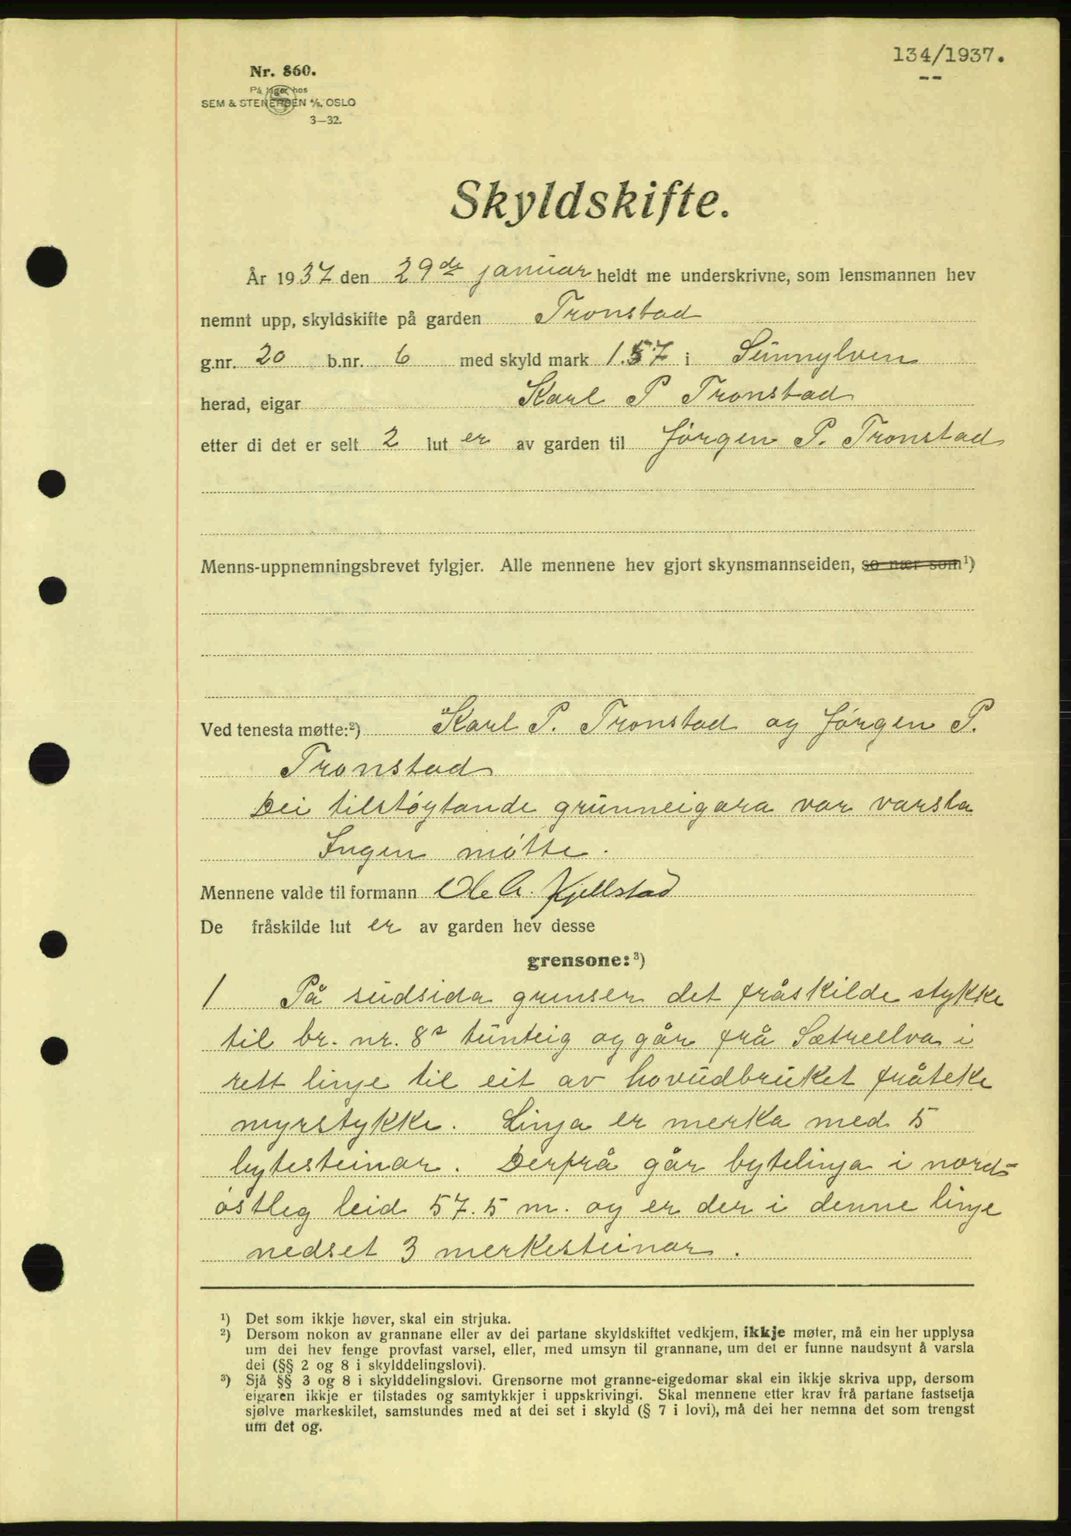 134/1937.
--
Nr. 860.
På lager hos
SEM & STENERSEN A/S, OSLO
3—32.
Skyldskifte.
År 1937 den 29de januar heldt me underskrivne, som lensmannen hev
nemnt upp, skyldskifte på garden Tronstad
g.nr. 20 b.nr. 6 med skyld mark 1.57 i Sunnylven
herad, eigar Karl P Tronstad
etter di det er selt 2 lut er av garden til Jørgen P. Tronstad
Menns-uppnemningsbrevet fylgjer. Alle mennene hev gjort skynsmannseiden, so nær som¹)
Ved tenesta møtte:²) Karl P. Tronstad og Jørgen P.
Tronstad
Dei tilstøytande grunneigara var varsla
Ingen møtte.
Mennene valde til formann Ole A. Kjellstad
De fråskilde lut er av garden hev desse
grensone:³)
1 På sudsida grenser det fråskilde stykke
til br. nr. 8s tunteig og går frå Sætreelva i
rett linje til eit av hovudbruket fråteke
myrstykke. Linja er merka med 5
bytesteinar. Derfrå går bytelinja i nord-
østleg leid 57.5 m. og er der i denne linje
nedset 3 merkesteinar.
¹) Det som ikkje høver, skal ein strjuka.
²) Dersom nokon av grannane eller av dei partane skyldskiftet vedkjem, ikkje møter, må ein her upplysa
um dei hev fenge provfast varsel, eller, med umsyn til grannane, um det er funne naudsynt å varsla
dei (§§ 2 og 8 i skylddelingslovi).
³) Sjå §§ 3 og 8 i skylddelingslovi. Grensorne mot granne-eigedomar skal ein ikkje skriva upp, dersom
eigaren ikkje er tilstades og samtykkjer i uppskrivingi. Skal mennene etter krav frå partane fastsetja
sjølve markeskilet, samstundes med at dei set i skyld (§ 7 i lovi), må dei her nemna det som trengst
um det og.